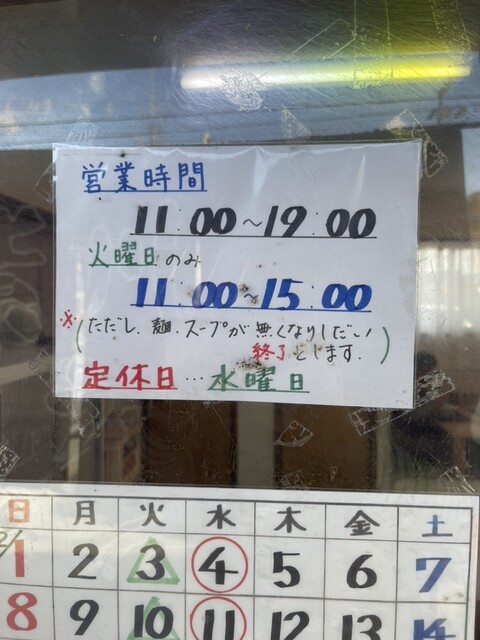 営業時間
11:00〜19:00
火曜日のみ
11:00〜15:00
※(ただし、麺・スープが無くなりしだい
終了とします。)
定休日…水曜日
日 月 火 水 木 金 土
2/1 2 3 4 5 6 7
8 9 10 11 12 13 14